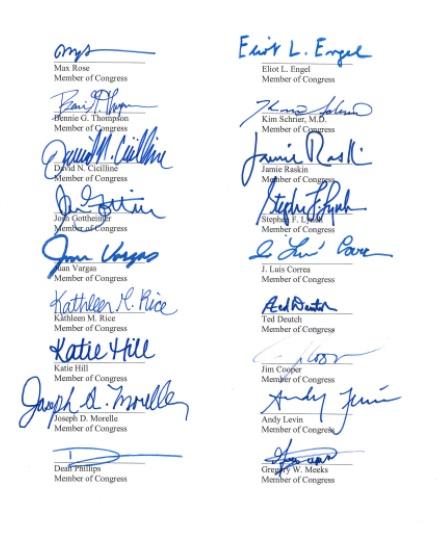 Max Rose
Member of Congress
Eliot L. Engel
Eliot L. Engel
Member of Congress
Bennie G. Thompson
Bennie G. Thompson
Member of Congress
Kim Schrier, M.D.
Member of Congress
David N. Cicilline
David N. Cicilline
Member of Congress
Jamie Raskin
Jamie Raskin
Member of Congress
Josh Gottheimer
Member of Congress
Stephen F. Lynch
Stephen F. Lynch
Member of Congress
Juan Vargas
Juan Vargas
Member of Congress
J. Luis Correa
Member of Congress
Kathleen M. Rice
Kathleen M. Rice
Member of Congress
Ted Deutch
Ted Deutch
Member of Congress
Katie Hill
Katie Hill
Member of Congress
Jim Cooper
Member of Congress
Joseph D. Morelle
Joseph D. Morelle
Member of Congress
Andy Levin
Andy Levin
Member of Congress
Dean Phillips
Member of Congress
Gregory W. Meeks
Member of Congress